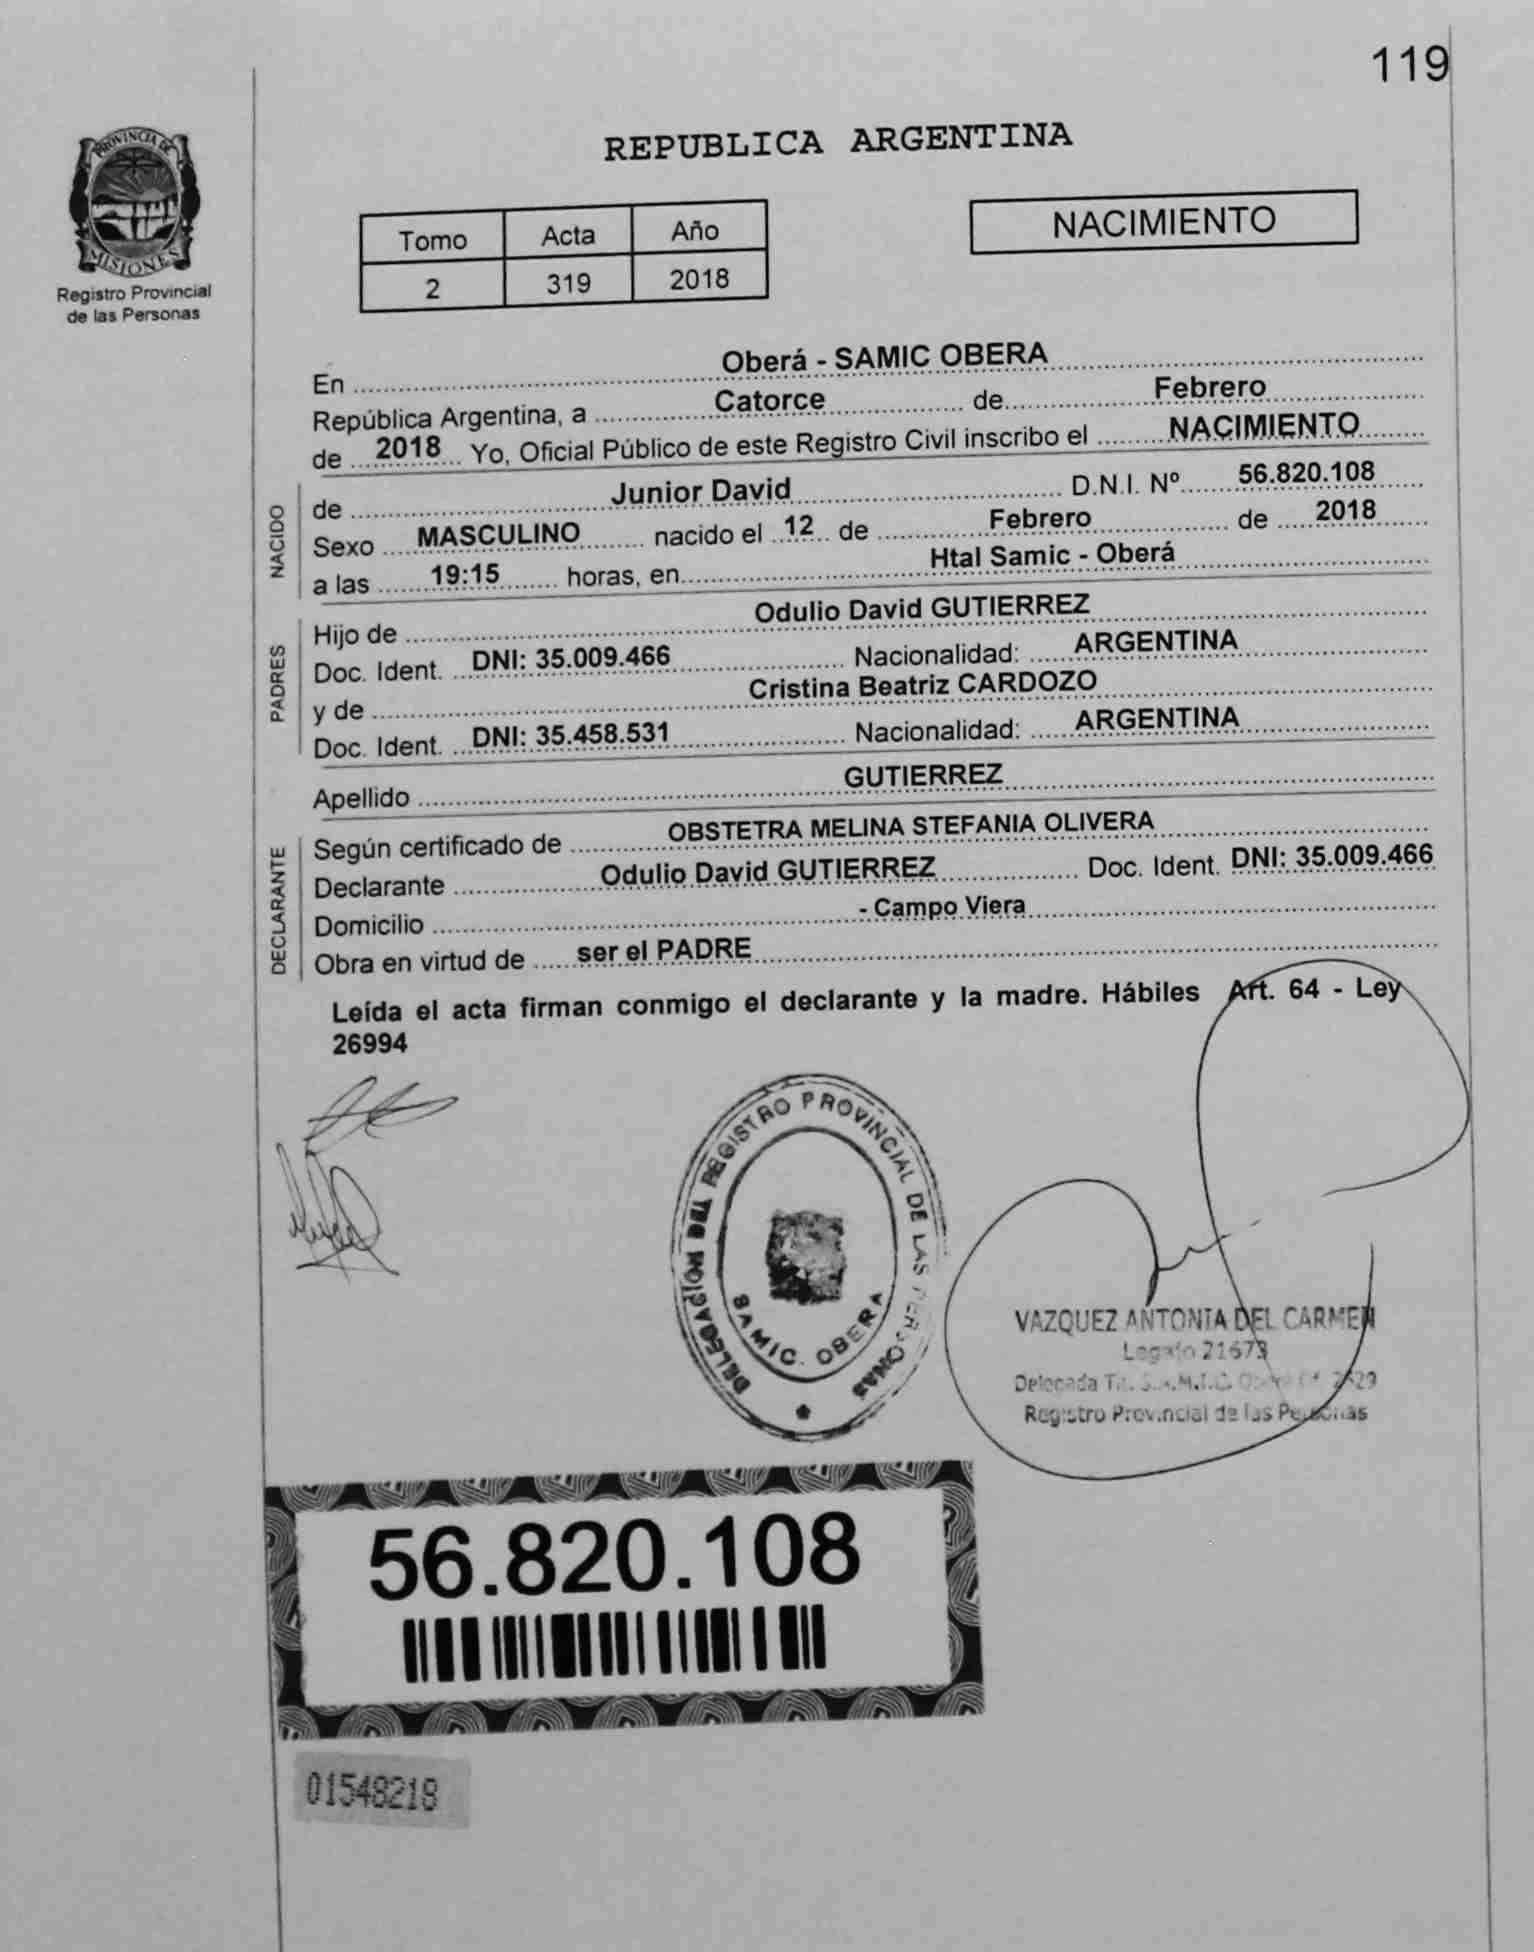 119
PROVINCIA DE
MISIONES
Registro Provincial
de las Personas
REPUBLICA ARGENTINA
Tomo Acta Año
2 319 2018
NACIMIENTO
En Oberá - SAMIC OBERA
República Argentina, a Catorce de Febrero
de 2018 Yo, Oficial Público de este Registro Civil inscribo el NACIMIENTO
NACIDO
de Junior David D.N.I. Nº 56.820.108
Sexo MASCULINO nacido el 12 de Febrero de 2018
a las 19:15 horas, en Htal Samic - Oberá
PADRES
Hijo de Odulio David GUTIERREZ
Doc. Ident. DNI: 35.009.466 Nacionalidad: ARGENTINA
y de Cristina Beatriz CARDOZO
Doc. Ident. DNI: 35.458.531 Nacionalidad: ARGENTINA
Apellido GUTIERREZ
DECLARANTE
Según certificado de OBSTETRA MELINA STEFANIA OLIVERA
Declarante Odulio David GUTIERREZ Doc. Ident. DNI: 35.009.466
Domicilio - Campo Viera
Obra en virtud de ser el PADRE
Leída el acta firman conmigo el declarante y la madre. Hábiles Art. 64 - Ley
26994
DELEGACION DEL REGISTRO PROVINCIAL DE LAS PERSONAS
SAMIC. OBERA
VAZQUEZ ANTONIA DEL CARMEN
Legajo 21673
Delegada S.A.M.I.C.
Registro Provincial de las Personas
56.820.108
01548218